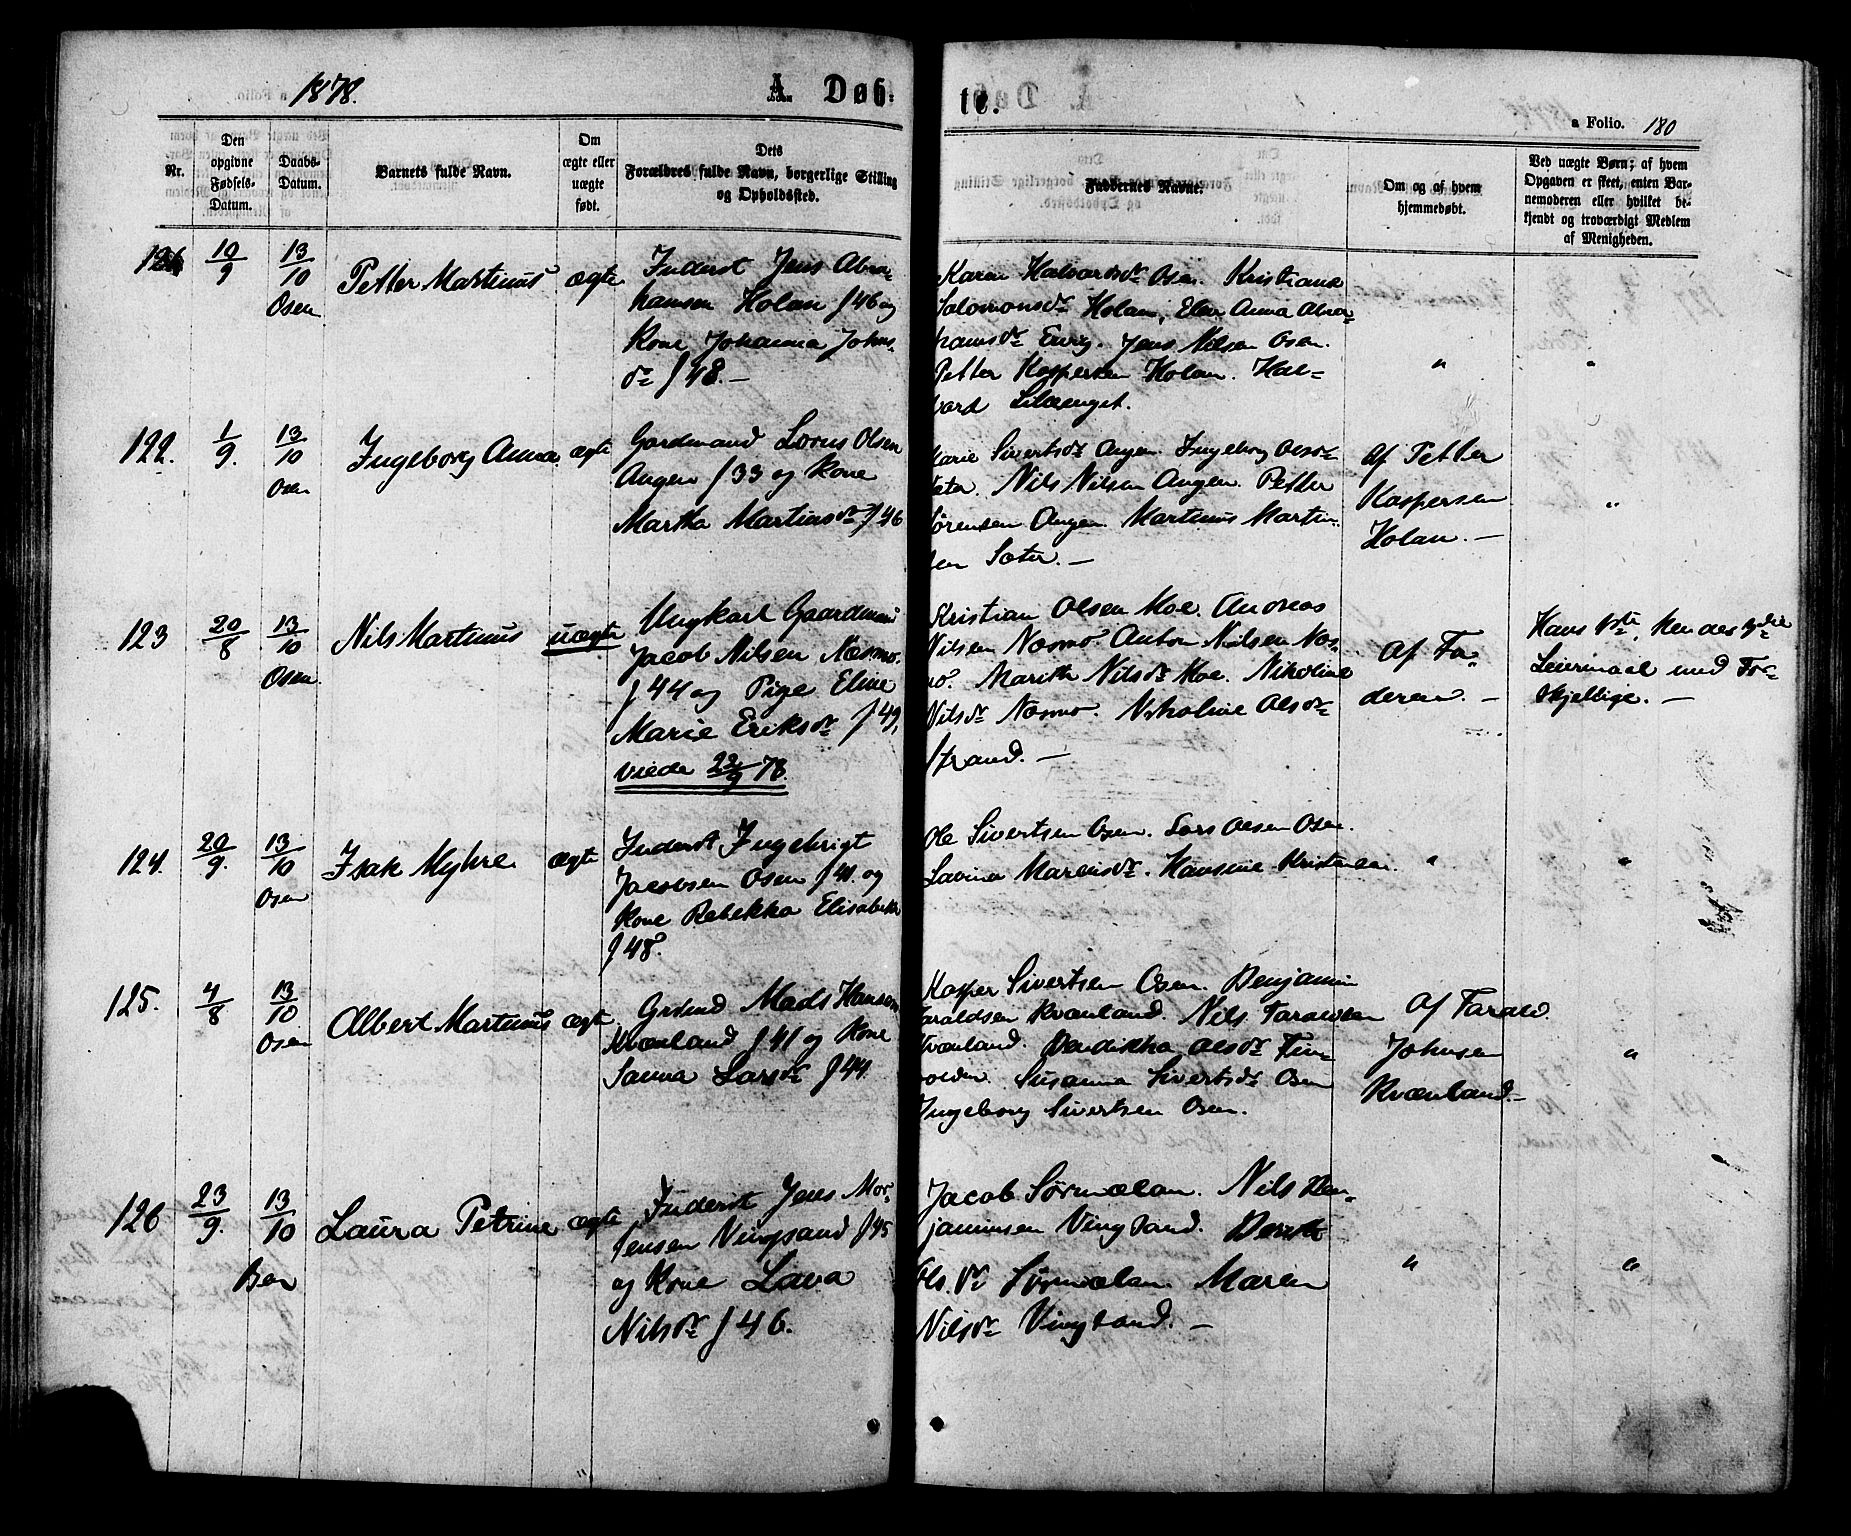 1878.
A. Døb-
te.
a Folio. 180
Nr.
Den opgivne Fødsels-Datum.
Daabs-Datum.
Barnets fulde Navn.
Om ægte eller uægte født.
Dets Forældres fulde Navn, borgerlige Stilling og Opholdssted.
Faddernes Navne.
Om og af hvem hjemmedøbt.
Ved uægte Børn; af hvem Opgaven er skeet, enten Barnemoderen eller hvilket bekjendt og troværdigt Medlem af Menigheden.
10/9
13/10
Osen
Petter Martinus
ægte
Inderst Jens Abra-
hamsen Holan f 46 og
Kone Johanna Johns-
dr f 48. -
Karen Halvardsdr Osen. Kristiane
Salomonsdr Holan, Elen Anna Abra-
hamsdr Envig. Jens Nilsen Osen.
Petter Kaspersen Holan. Hal-
vard Lilleenget.
"
"
122.
1/9.
13/10
Osen
Ingeborg Anna.
ægte
Gardmand Lorns Olsen
Angen f 33 og Kone
Martha Martinsdr f 46
Marie Sivertsdr Angen. Ingeborg Olsdr
Sæter. Nils Nilsen Angen. Petter
Sørensen Angen. Martinus Martin-
sen Sæter. -
Af Petter
Kaspersen
Holan. -
"
123
20/8
13/10
Osen.
Nils Martinus
uægte
Ungkarl Gaardmand
Jacob Nilsen Næsmo.
f 44 og Pige Eline
Marie Eriksdr f 49,
viede 22/9 78.
Kristian Olsen Moe. Andreas
Nilsen Næsmo. Anton Nilsen Næs-
mo. Marith Nilsdr Moe. Nikoline
Nilsdr Næsmo. Nikoline Olsdr
Strand. -
Af Fa-
deren. -
Hans 1ste, Hendes
Leiermaal med For-
skjellige. -
124.
20/9.
13/10
Osen
Isak Myhre
ægte
Inderst Ingebrigt
Jacobsen Osen f 41. og
Kone Rebekka Elisabeth
f 48.
Ole Sivertsen Osen. Lars Olsen Osen.
Lavina Marensdr. Hansine Kristensen.
"
"
125.
4/8
13/10
Osen
Albert Martinus
ægte
Grdmd Mads Hansen
Kvænland f 41 og Kone
Sanna Larsdr f 44
Kasper Sivertsen Osen. Benjamin
Taraldsen Kvænland. Nils Taraldsen
Kvænland. Bendikka Olsdr Fin-
volden. Susanna Sivertsdr Osen
Ingeborg Sivertsen Osen.
Af Tarald
Johnsen
Kvænland. -
"
126
23/9.
13/10
Osen
Laura Petrine
ægte
Inderst Jens Mor-
tensen Vingsand f 45
og Kone Lava
Nilsdr f 46.
Jacob Sørmælan. Nils Ben-
jaminsen Vingsand. Berit
Olsdr Sørmælan. Maren
Nilsdr Vingsand. -
"
"